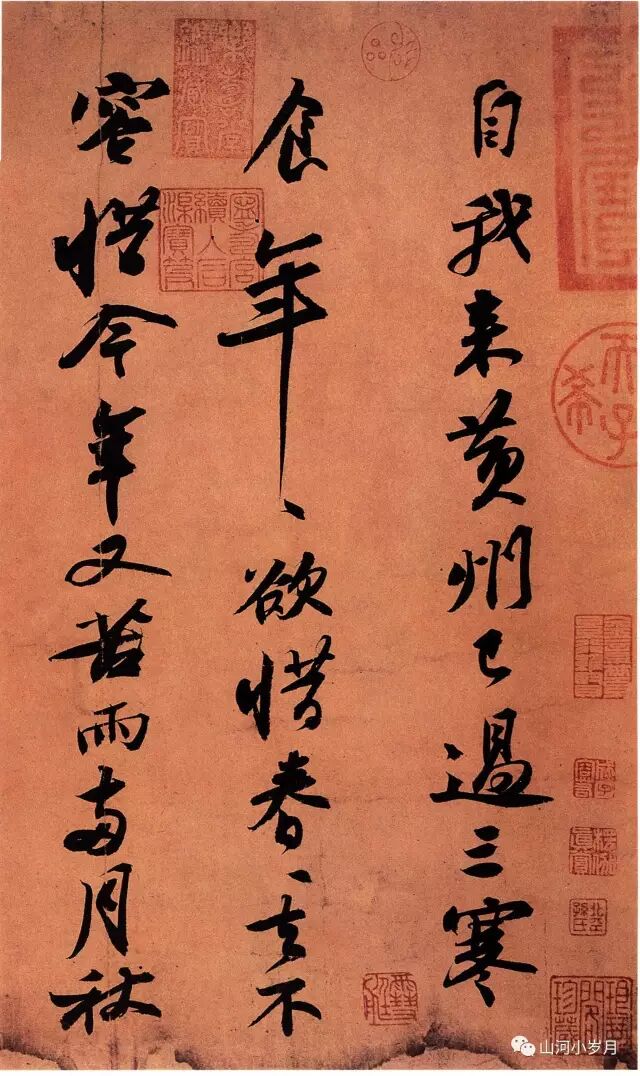 自我来黄州已過三寒
食年〻欲惜春〻去不
容惜今年又苦雨兩月秋
天子古希
山河小岁月